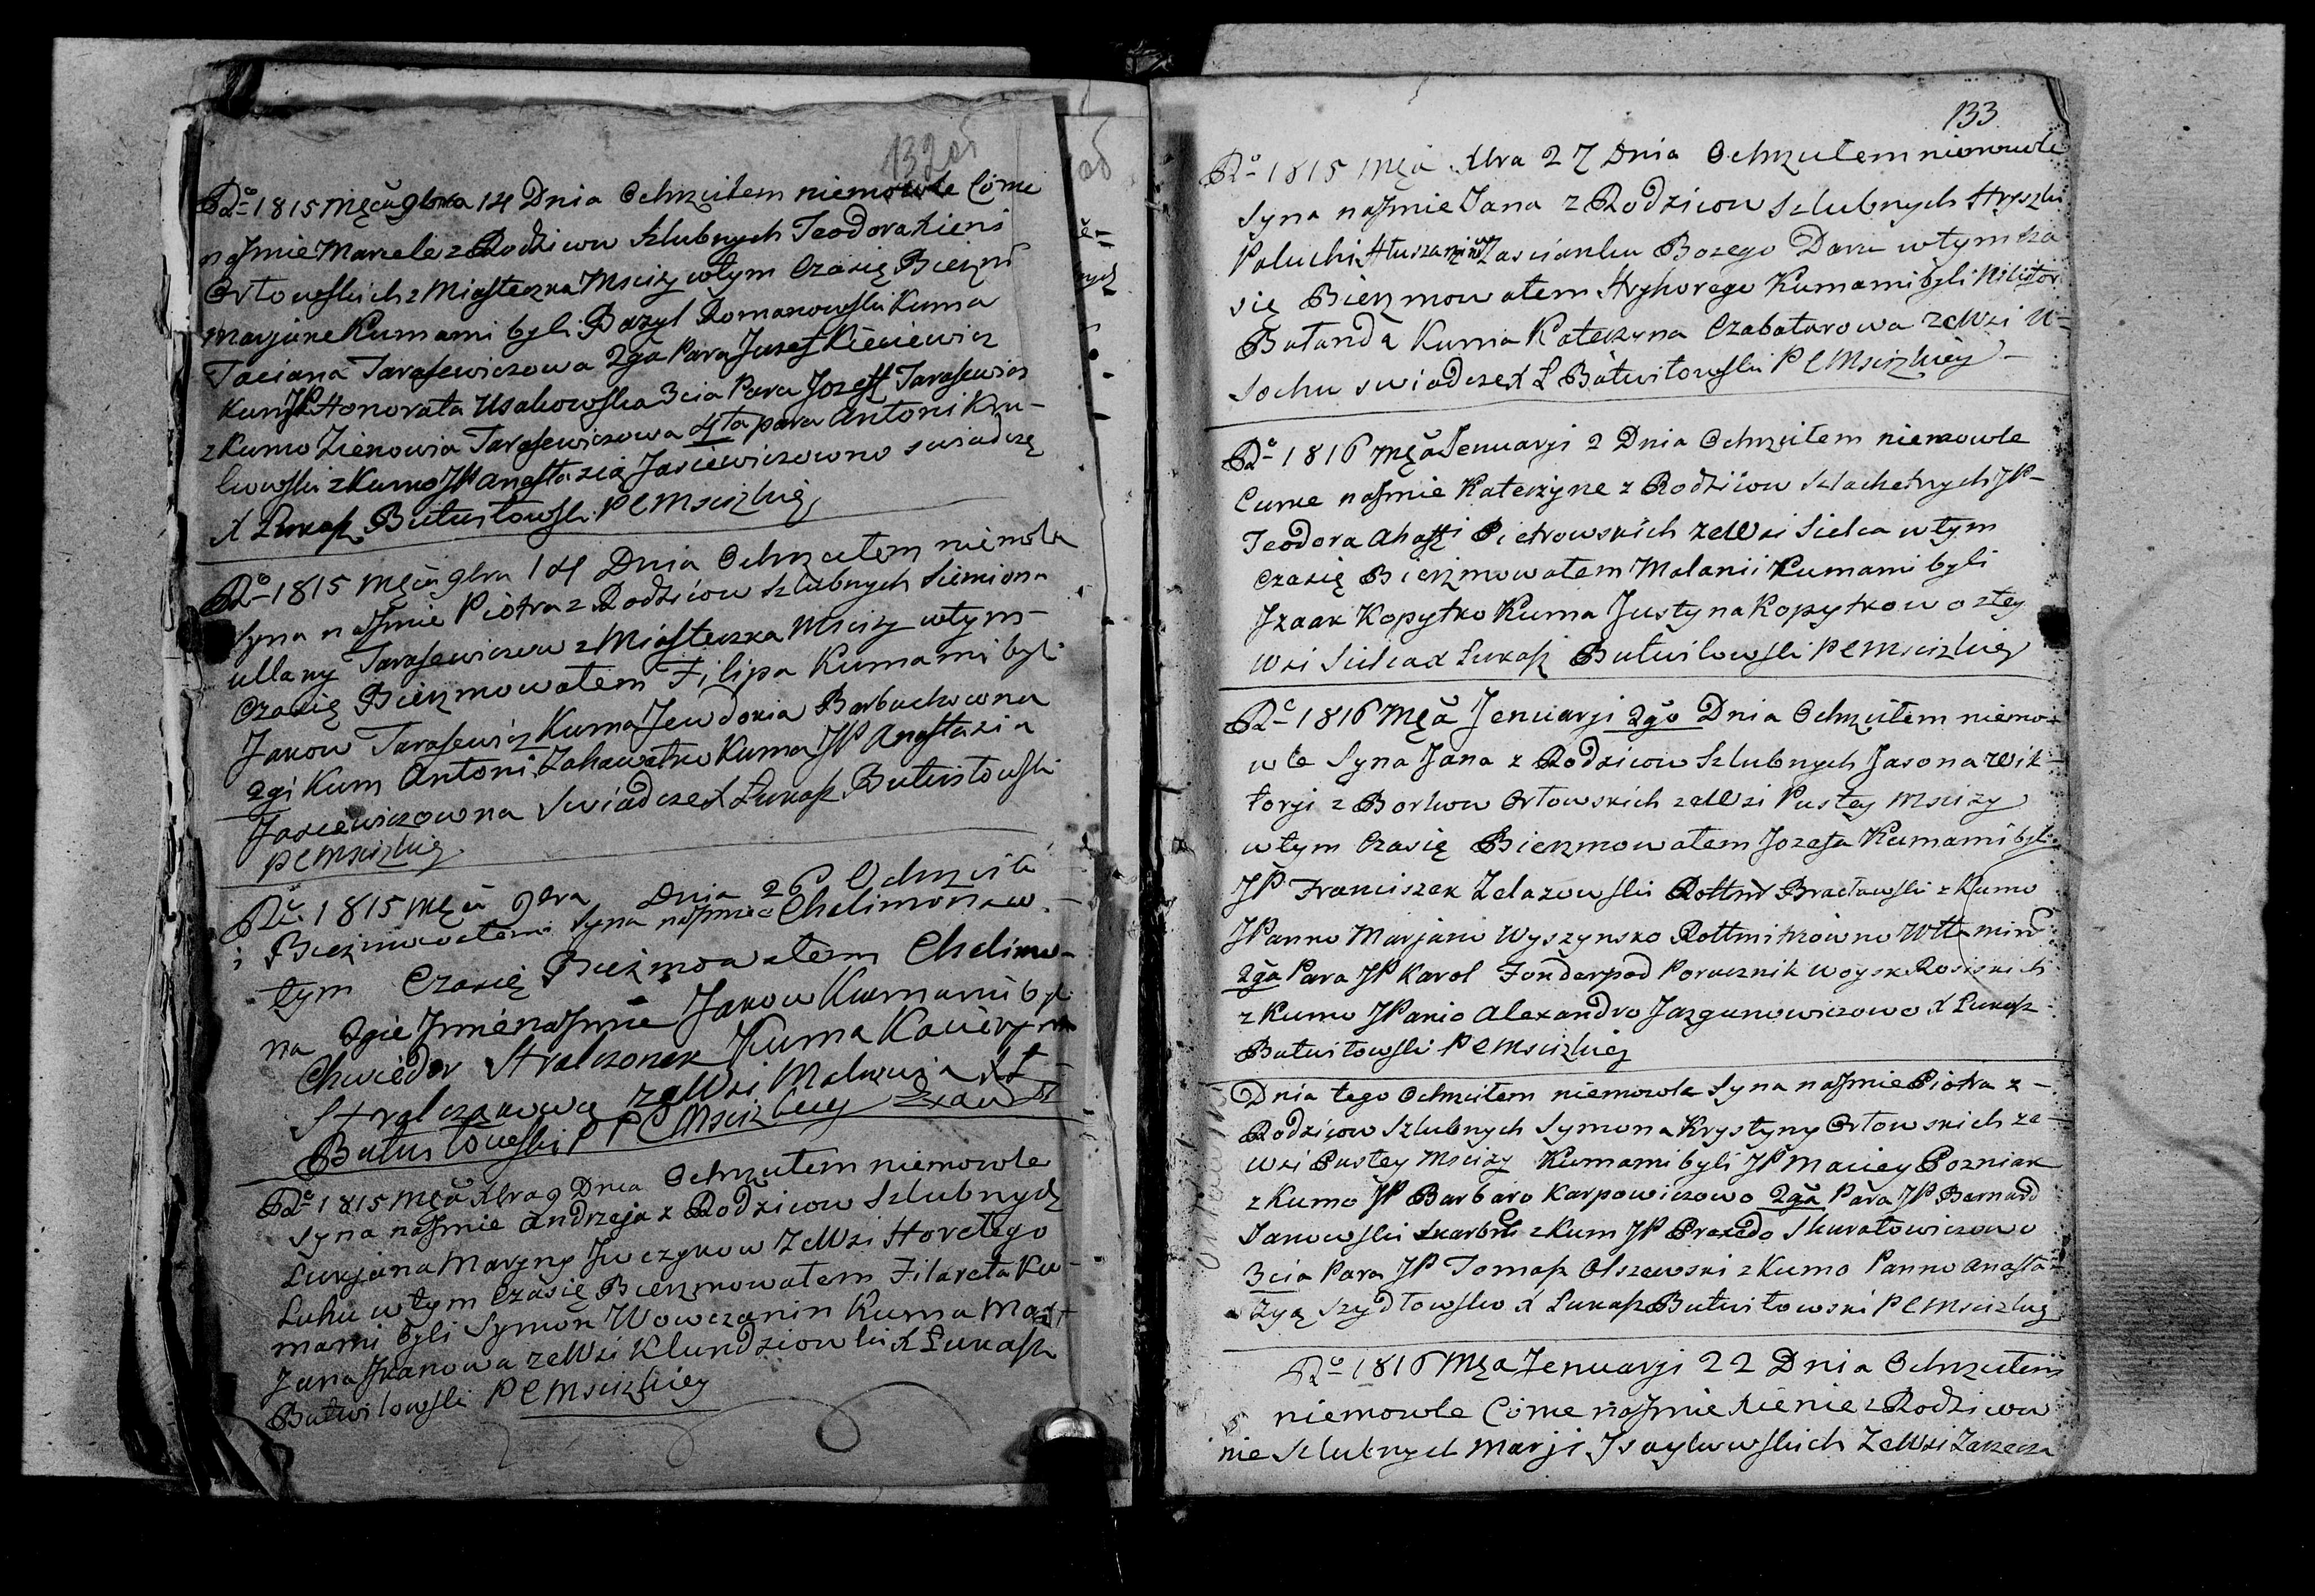 132 об
Rо 1815 Męca 9bra 14 Dnia Ochrzciłem niemowle Córne
na Jmie Marcele z Rodziców Szlubnych Teodora Xieni
Orłowskich z Miasteczka Mściży wtym Czasię Bierzm
Marjane Kumami byli Bazyl Romanowski Kuma
Taciana Tarasewiczowa 2ga Para Juzef Kieciewicz
Kum JP Honorata Usakowska 3cia Para Jozeff Tarasewicz
z Kumo Zienowia Tarasewiczowa 4ta para Antoni
z Kumo JP Anastazią Jasiewiczowno swiadczę
X Łukasz Butwiłowski P C Mscizkiey
Rо 1815 Męca 9bra 14 Dnia Ochrzciłem niemole
Syna na Jmie Piotra z Rodziców Szlubnych Siemiona
Ullany Tarasewiczow z Miasteczka Mściży wtym
Czasię Bierzmowałem Filipa Kumami byli
Jakow Tarasewicz Kuma Jewdokia Barbuchowna
2gi Kum Antoni Zahawałko Kuma JP Anastazia
Jasiewiczowna Swiadcze X Łukasz Butwiłowski
P C Mscizkiey
Rо 1815 Męca 9bra Dnia 26 Ochrzcił
i Bierzmowałem Syna na Jmie Chelimona w
tym Czasię Bierzmowałem Chelimo-
na 2gie Jmie na Jmie Jakow Kumami byli
Chwiedor Stralczonek Kuma Kacieryna
Stralczonkowa ze Wsi
Butwiłowski P C Mscizkiey
Rо 1815 Męca Xbra 9 Dnia Ochrzciłem niemowle
Syna na Jmie Andrzeja z Rodzicow Szlubnych
Łukjana Maryny Jwczykow ze Wsi Horełego
Łuhu wtym Czasię Bierzmowałem Filareta Ku-
mami byli Symon Wowczanin Kuma Mart
Jana Jwanowa ze Wsi Klundziowki X Łukasz
Butwiłowski P C Mscizkiey
133
Rо 1815 Męca Xbra 27 Dnia Ochrzciłem niemowle
Syna na Jmie Jana z Rodzicow Szlubnych Hryszki
Paluchi Zascianku Bozego Daru wtym Cza
się Bierzmowałem Hryhorego Kumami byli Nikifor
Bałanda Kuma Katerzyna Czabatarowa ze Wsi U-
sochu swiadcze X Ł Butwiłowski P C Mscizkiey
Rо 1816 Męca Jenuarji 2 Dnia Ochrzciłem niemowle
Curne na Jmie Katerzyne z Rodzicow Szlachetnych JP
Teodora Ahafji Pietrowskich ze Wsi Sielca wtym
Czasię Bierzmowałem Malanii Kumami byli
Jzaak Kopytko Kuma Justyna Kopytkowo ztey
Wsi Sielca X Łukasz Butwiłowski P C Mscizkiey
Rо 1816 Męca Jenuarji 2go Dnia Ochrzciłem niemo-
wle Syna Jana z Rodzicow Szlubnych Jasona Wik-
torji z Borkow Orłowskich ze Wsi Pustey Msciży
wtym Czasię Bierzmowałem Jozefa Kumami byli
JP Franciszek Zelazowski Rottm Bracławski z Kumo
JPanno Marjano Wyszynsko Rottmitrzówno Wtta mird
2ga Para JP Karol Fonderpad Porucznik Woysk Rosiskich
z Kumo JPanio Alexandro Jazgunowiczowo X Łukasz
Butwiłowski P C Mscizkiey
Dnia tego Ochrzciłem niemowle Syna na Jmie Piotra z-
Rodzicow Szlubnych Symona Krystyny Orłowskich ze-
Wsi Pustey Msciży Kumami byli JP Maciey Pozniak
z Kumo JP Barbaro Karpowiczowo 2ga Para JP Bernard
Janowski Skarbni z Kum JP Praxedo Skuratowiczowo
3cia Para JP Tomasz Olszewski z Kumo Panno Anasta-
zyą Szydłowsko X Łukasz Butwiłowski P C Mscizkiey
Rо 1816 Męca Jenuarji 22 Dnia Ochrzciłem
niemowle Córne na Jmie Xienie z Rodzicow
nie Szlubnych Marji Jsaykowskich ze Wsi Zarzecza